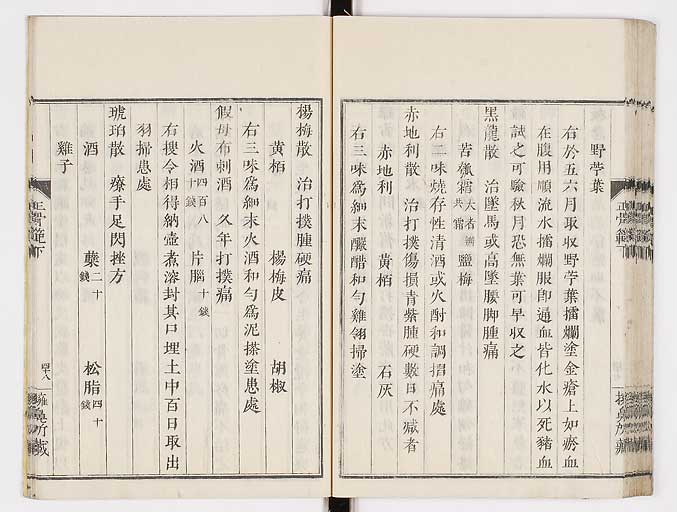 野苧葉
右於五六月取收野苧葉擂爛塗金瘡上如瘀血
在腹用順流水擂爛服卽通血皆化水以死豬血
試之可驗秋月恐無葉可早收之
黑龍散　治墜馬或高墜腰脚腫痛
鹽梅
右二味燒存性清酒或火酎和調搨痛處
赤地利散　治打撲傷損青紫腫硬數日不減者
赤地利　黄栢　石灰
右三味爲細末釅醋和勻雞翎掃塗
楊梅散　治打撲腫硬痛
黄栢　楊梅皮　胡椒
右三味爲細末火酒和勻爲泥搽塗患處
假母布刺酒　久年打撲痛
火酒四百八十錢　片腦十錢
右搜令相得納壺煮溶封其口埋土中百日取出
羽掃患處
琥珀散　療手足閃挫方
酒　蘃二十錢　松脂四十錢
雞子
正骨範下
四十八